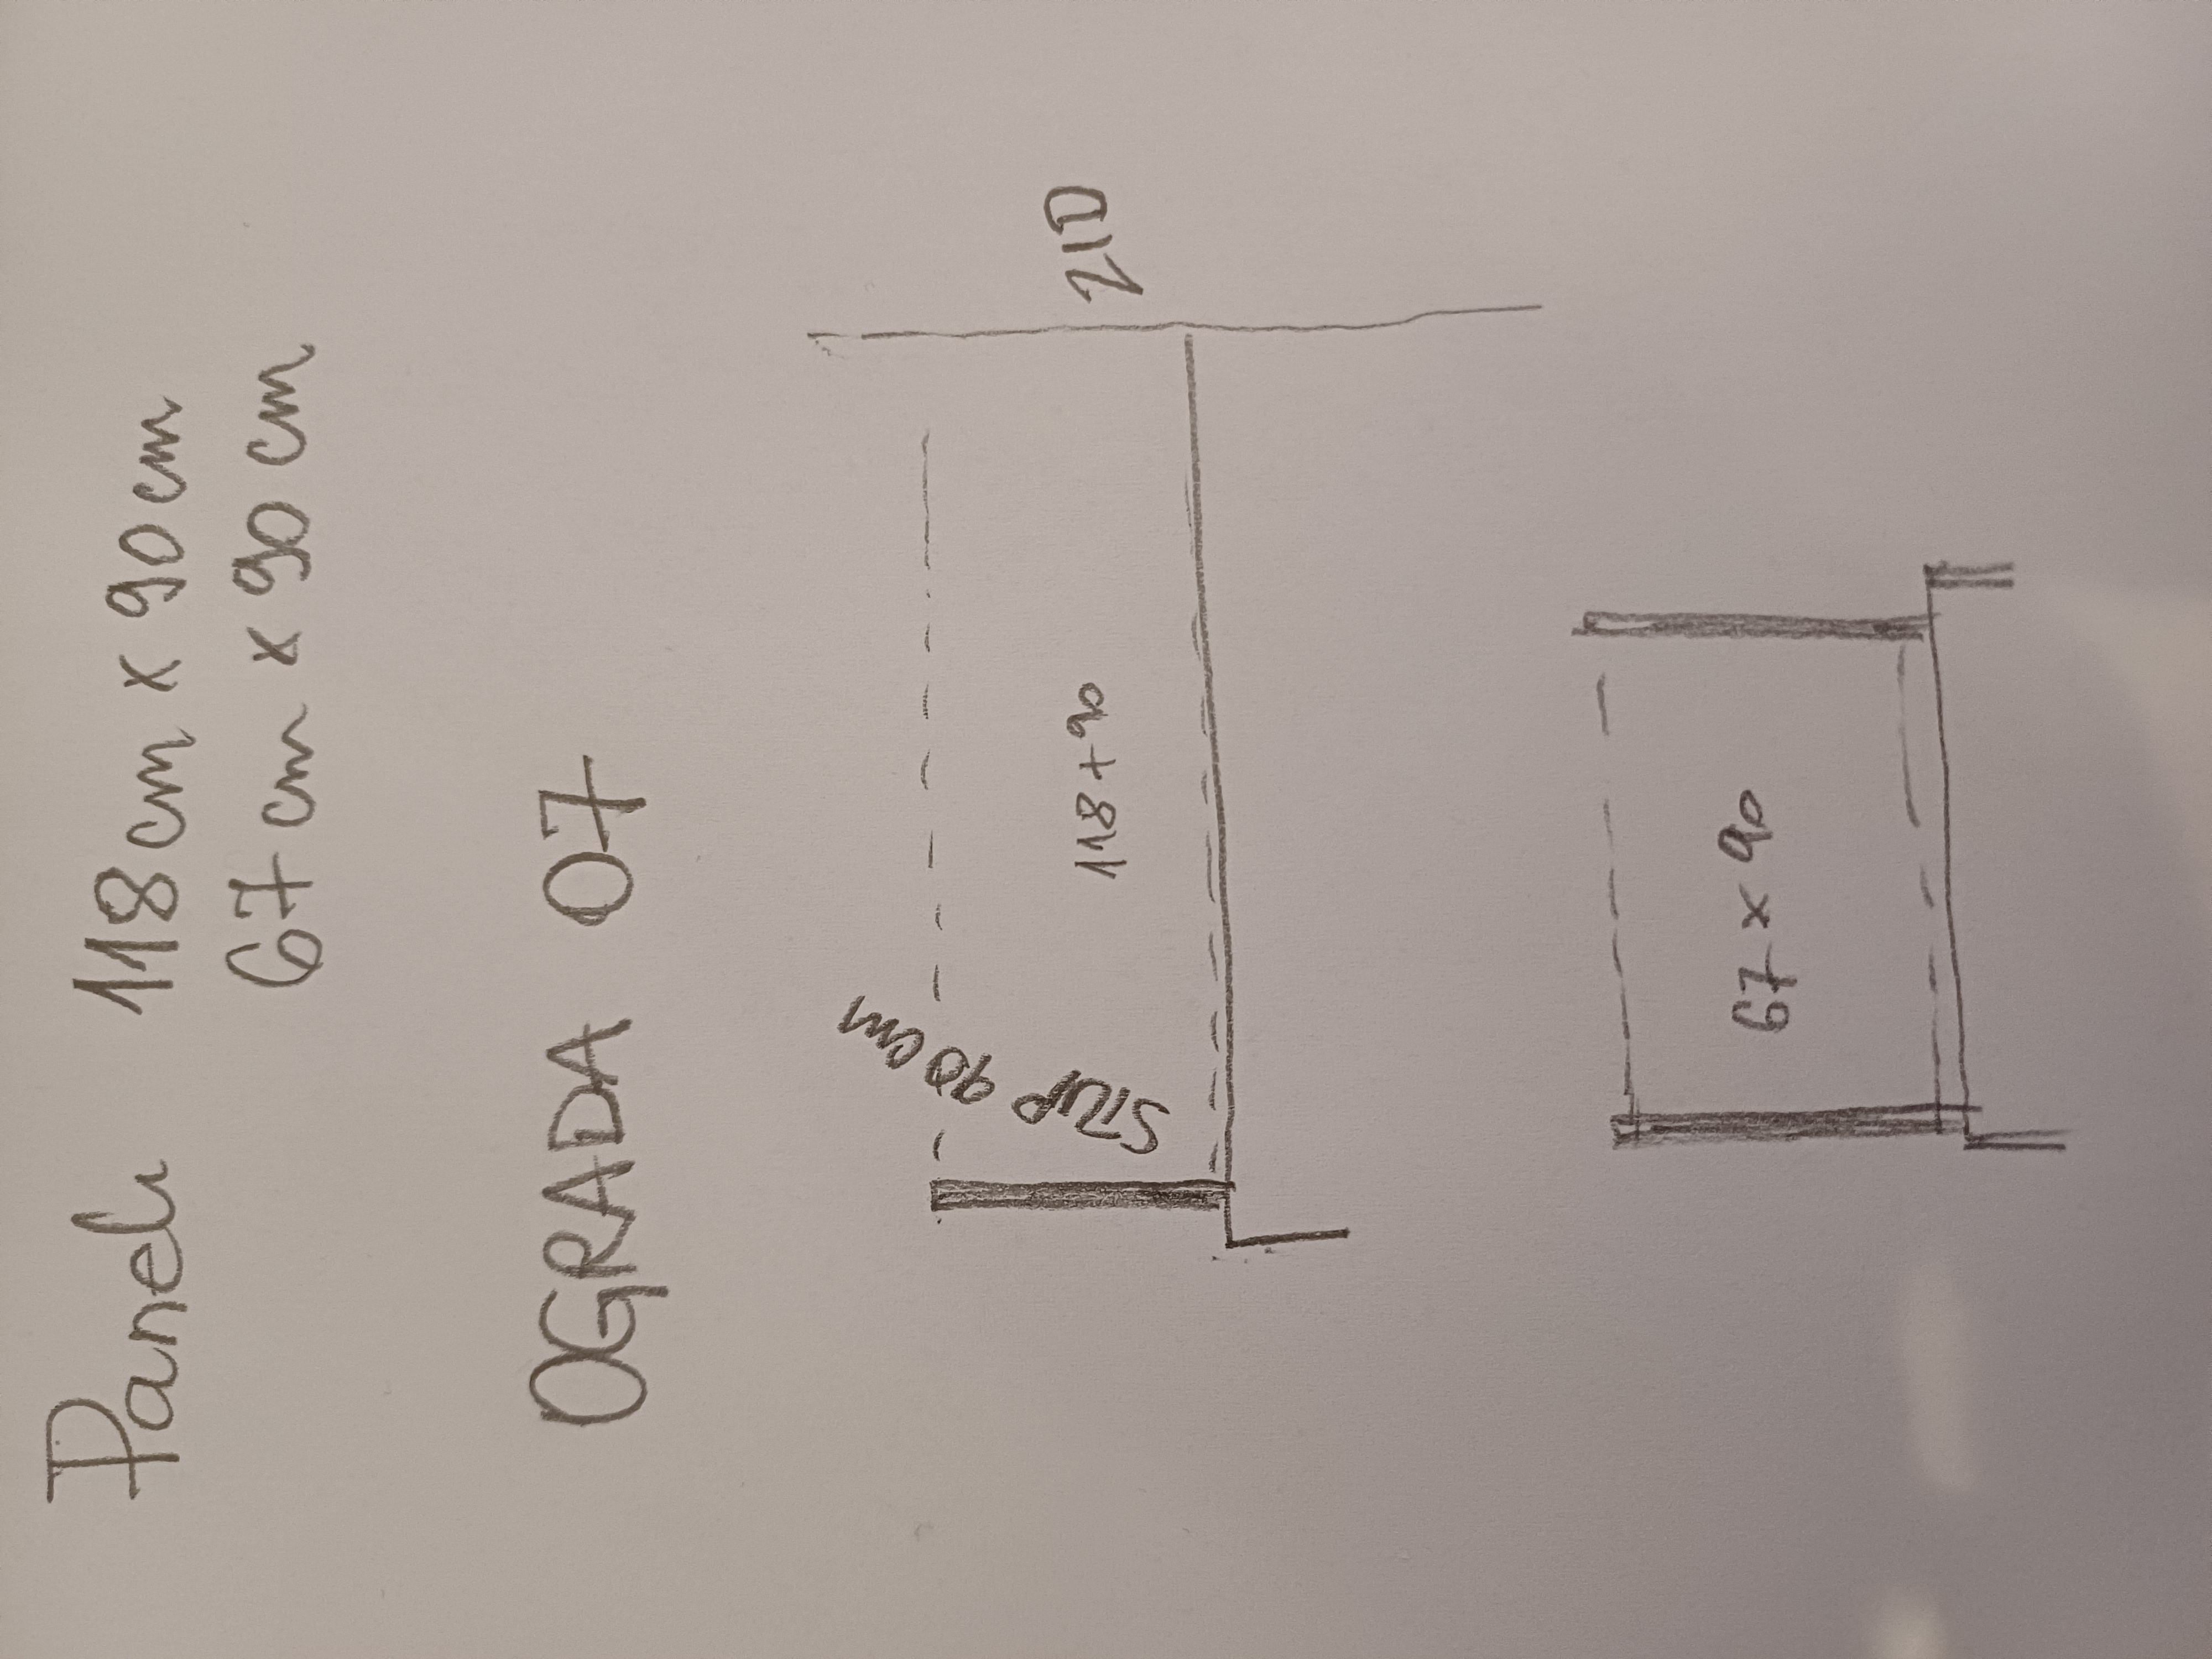 Paneli 118 cm x 90 cm
67 cm x 90 cm
OGRADA 07
STUP 90 cm
118 + 90
ZID
67 x 90